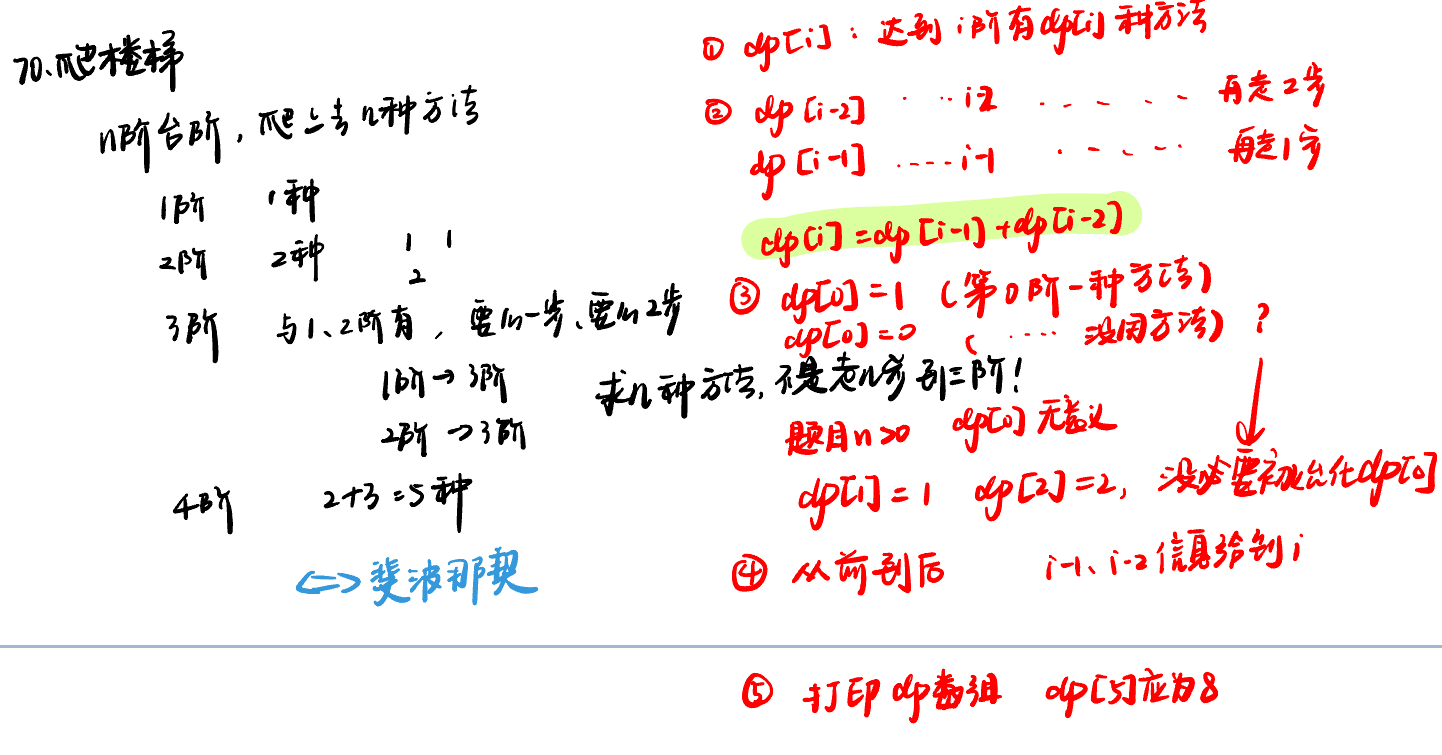 70.爬楼梯
n阶台阶，爬上去几种方法
1阶 1种
2阶 2种 1 1
2
3阶 与1、2阶有，要么一步、要么2步
1阶→3阶
2阶→3阶
求几种方法，不是走几步到三阶！
4阶 2+3=5种
<=>斐波那契
① dp[i]：达到i阶有dp[i]种方法
② dp[i-2] ....i-2 ...... 再走2步
dp[i-1] .....i-1 ...... 再走1步
dp[i]=dp[i-1]+dp[i-2]
③ dp[0]=1 (第0阶一种方法)
dp[0]=0 ( ..... 没用方法) ?
题目n>0 dp[0]无意义
dp[1]=1 dp[2]=2，没必要初始化dp[0]
④ 从前到后 i-1、i-2信息给到i
⑤ 打印dp数组 dp[5]应为8